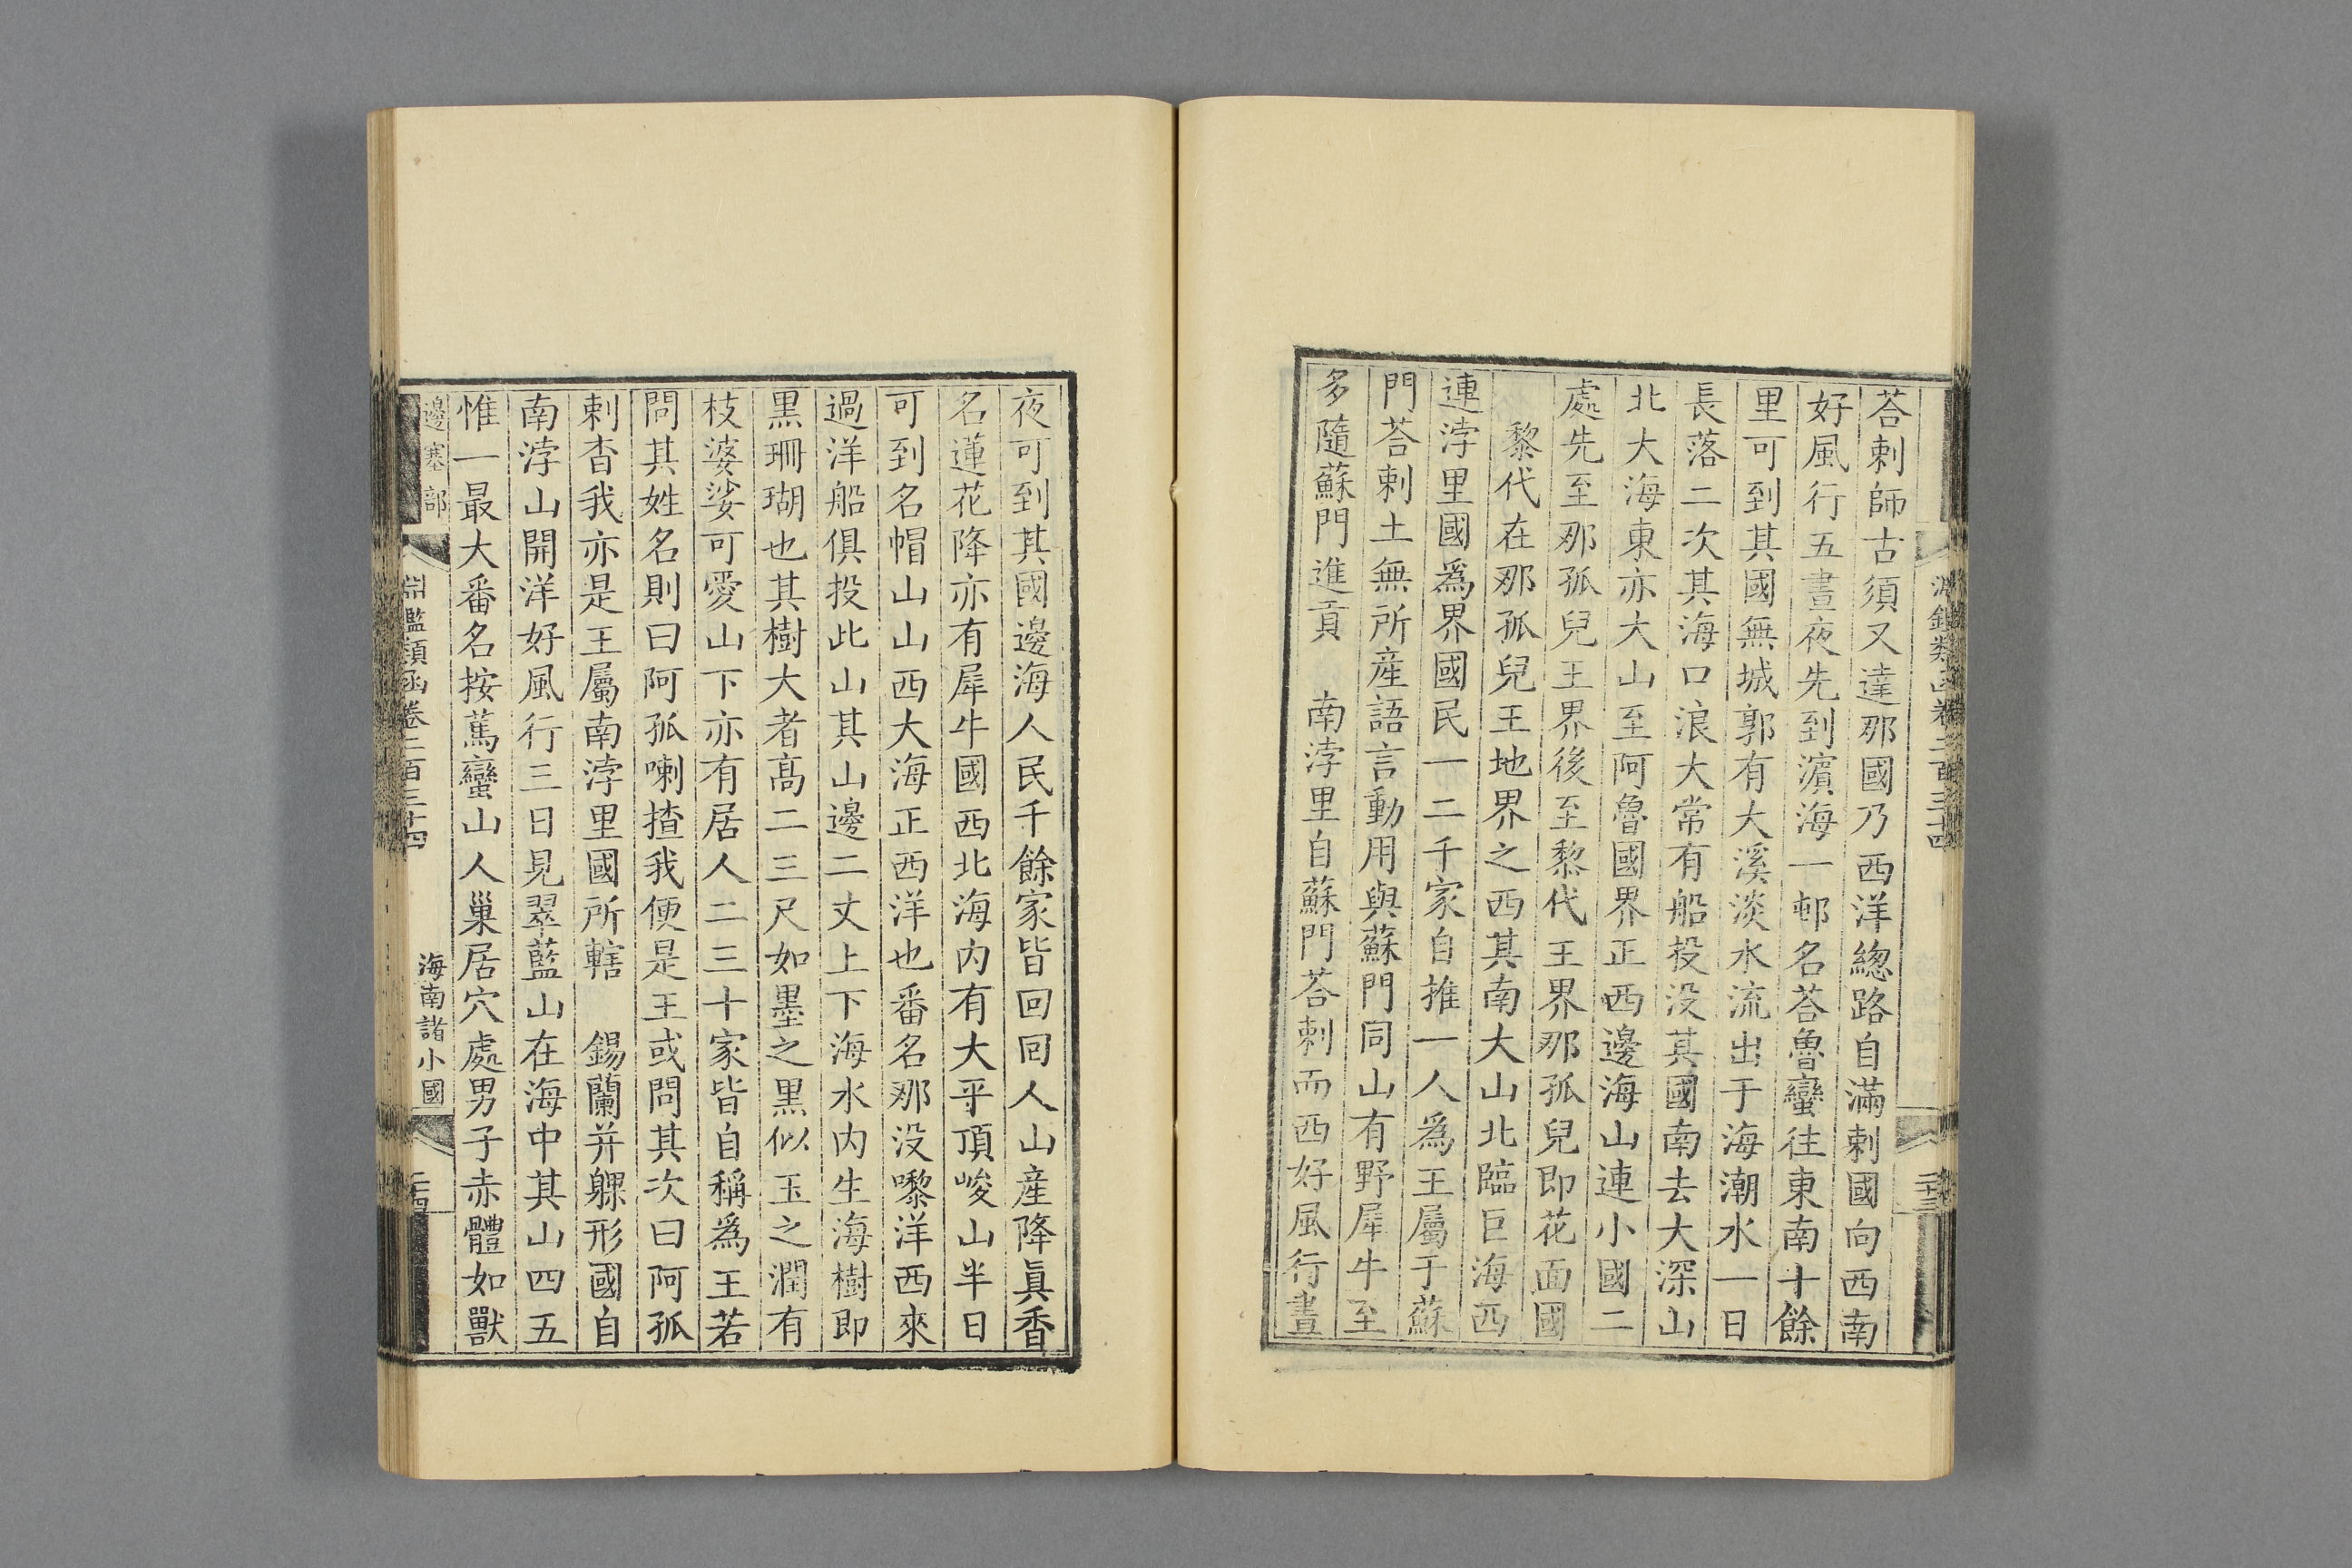 淵鑑類函卷二百三十四
二十三
荅剌師古須又達那國乃西洋總路自滿剌國向西南
好風行五晝夜先到濵海一邨名荅魯蠻往東南十餘
里可到其國無城郭有大溪淡水流出于海潮水一日
長落二次其海口浪大常有船投没其國南去大深山
北大海東亦大山至阿魯國界正西邊海山連小國二
處先至那孤兒王界後至黎代王界那孤兒即花面國
黎代在那孤兒王地界之西其南大山北臨巨海西
連浡里國爲界國民一二千家自推一人爲王屬于蘇
門荅剌土無所産語言動用與蘇門同山有野犀牛至
多隨蘇門進貢　南浡里自蘇門荅剌而西好風行晝
夜可到其國邊海人民千餘家皆回回人山産降眞香
名蓮花降亦有犀牛國西北海内有大平頂峻山半日
可到名帽山山西大海正西洋也番名那没嚟洋西來
過洋船俱投此山其山邊二丈上下海水内生海樹即
黒珊瑚也其樹大者高二三尺如墨之黒似玉之潤有
枝婆娑可愛山下亦有居人二三十家皆自稱爲王若
問其姓名則曰阿孤喇揸我便是王或問其次曰阿孤
剌杳我亦是王屬南浡里國所轄　錫蘭并躶形國自
南浡山開洋好風行三日見翠藍山在海中其山四五
惟一最大番名按蔦蠻山人巢居穴處男子赤體如獸
邊塞部
淵鑑類函卷二百三十四
海南諸小國
二十四